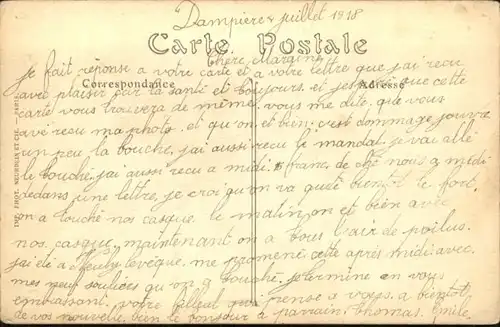 Dampierre juillet 1918
Carte Postale
Chère Margine
je fait réponse a votre carte et a votre lettre que j'ai recu
avec plaisir car la santé et toujours. et j'espère que cette
Correspondance
Adresse
carte vous trouvera de même. vous me dite que vous
avé recu ma photo. et qu'on et bien; c'est dommage j'ouvre
un peu la bouche, j'ai aussi recu le mandat. je vai allé
le touché. j'ai aussi recu a midi 5 franc, de
dedans une lettre, je croi qu'on va quété bientôt le fort,
on a touché nos casque. le matin, on et bien avec
nos casque, maintenant on a tous l'air de poilus.
j'ai été a l'évêque. me promené cette après midi avec
mes neuf souliées qu'on a touché. je termine en vous
embrassant. votre filleul qui pense a vous. a bientôt
de vos nouvelle, bien le bonsoir a parrain. Thomas. Emile,
IMP. PHOT. NEURDEIN ET CIE. — PARIS